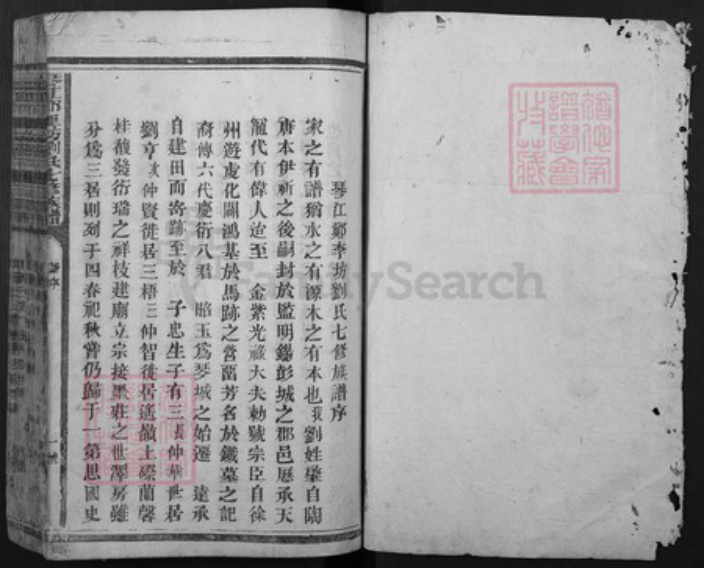 琴江鄭李坊劉氏七修族譜序
家之有譜猶水之有源木之有本也我劉姓肇自陶
唐本伊祈之後嗣封於監明錫彭城之郡邑歷承天
寵代有偉人迨至 金紫光祿大夫勅號宗臣自徐
州遊虔化闢鴻基於馬跡之窩茁芳名於鐵墓之記
裔傳六代慶衍八君 昭玉為琴城之始遷 遠承
自建田而寄跡至於 子忠生子有三長仲華世居
劉亨仲賢徙居三梧三仲智徙居遙嶺上磜蘭馨
桂馥發衍瑞之祥枝建廟立宗接墨莊之世澤房雖
分為三居則列于四春祀秋嘗仍歸于一第思國史
FamilySearch